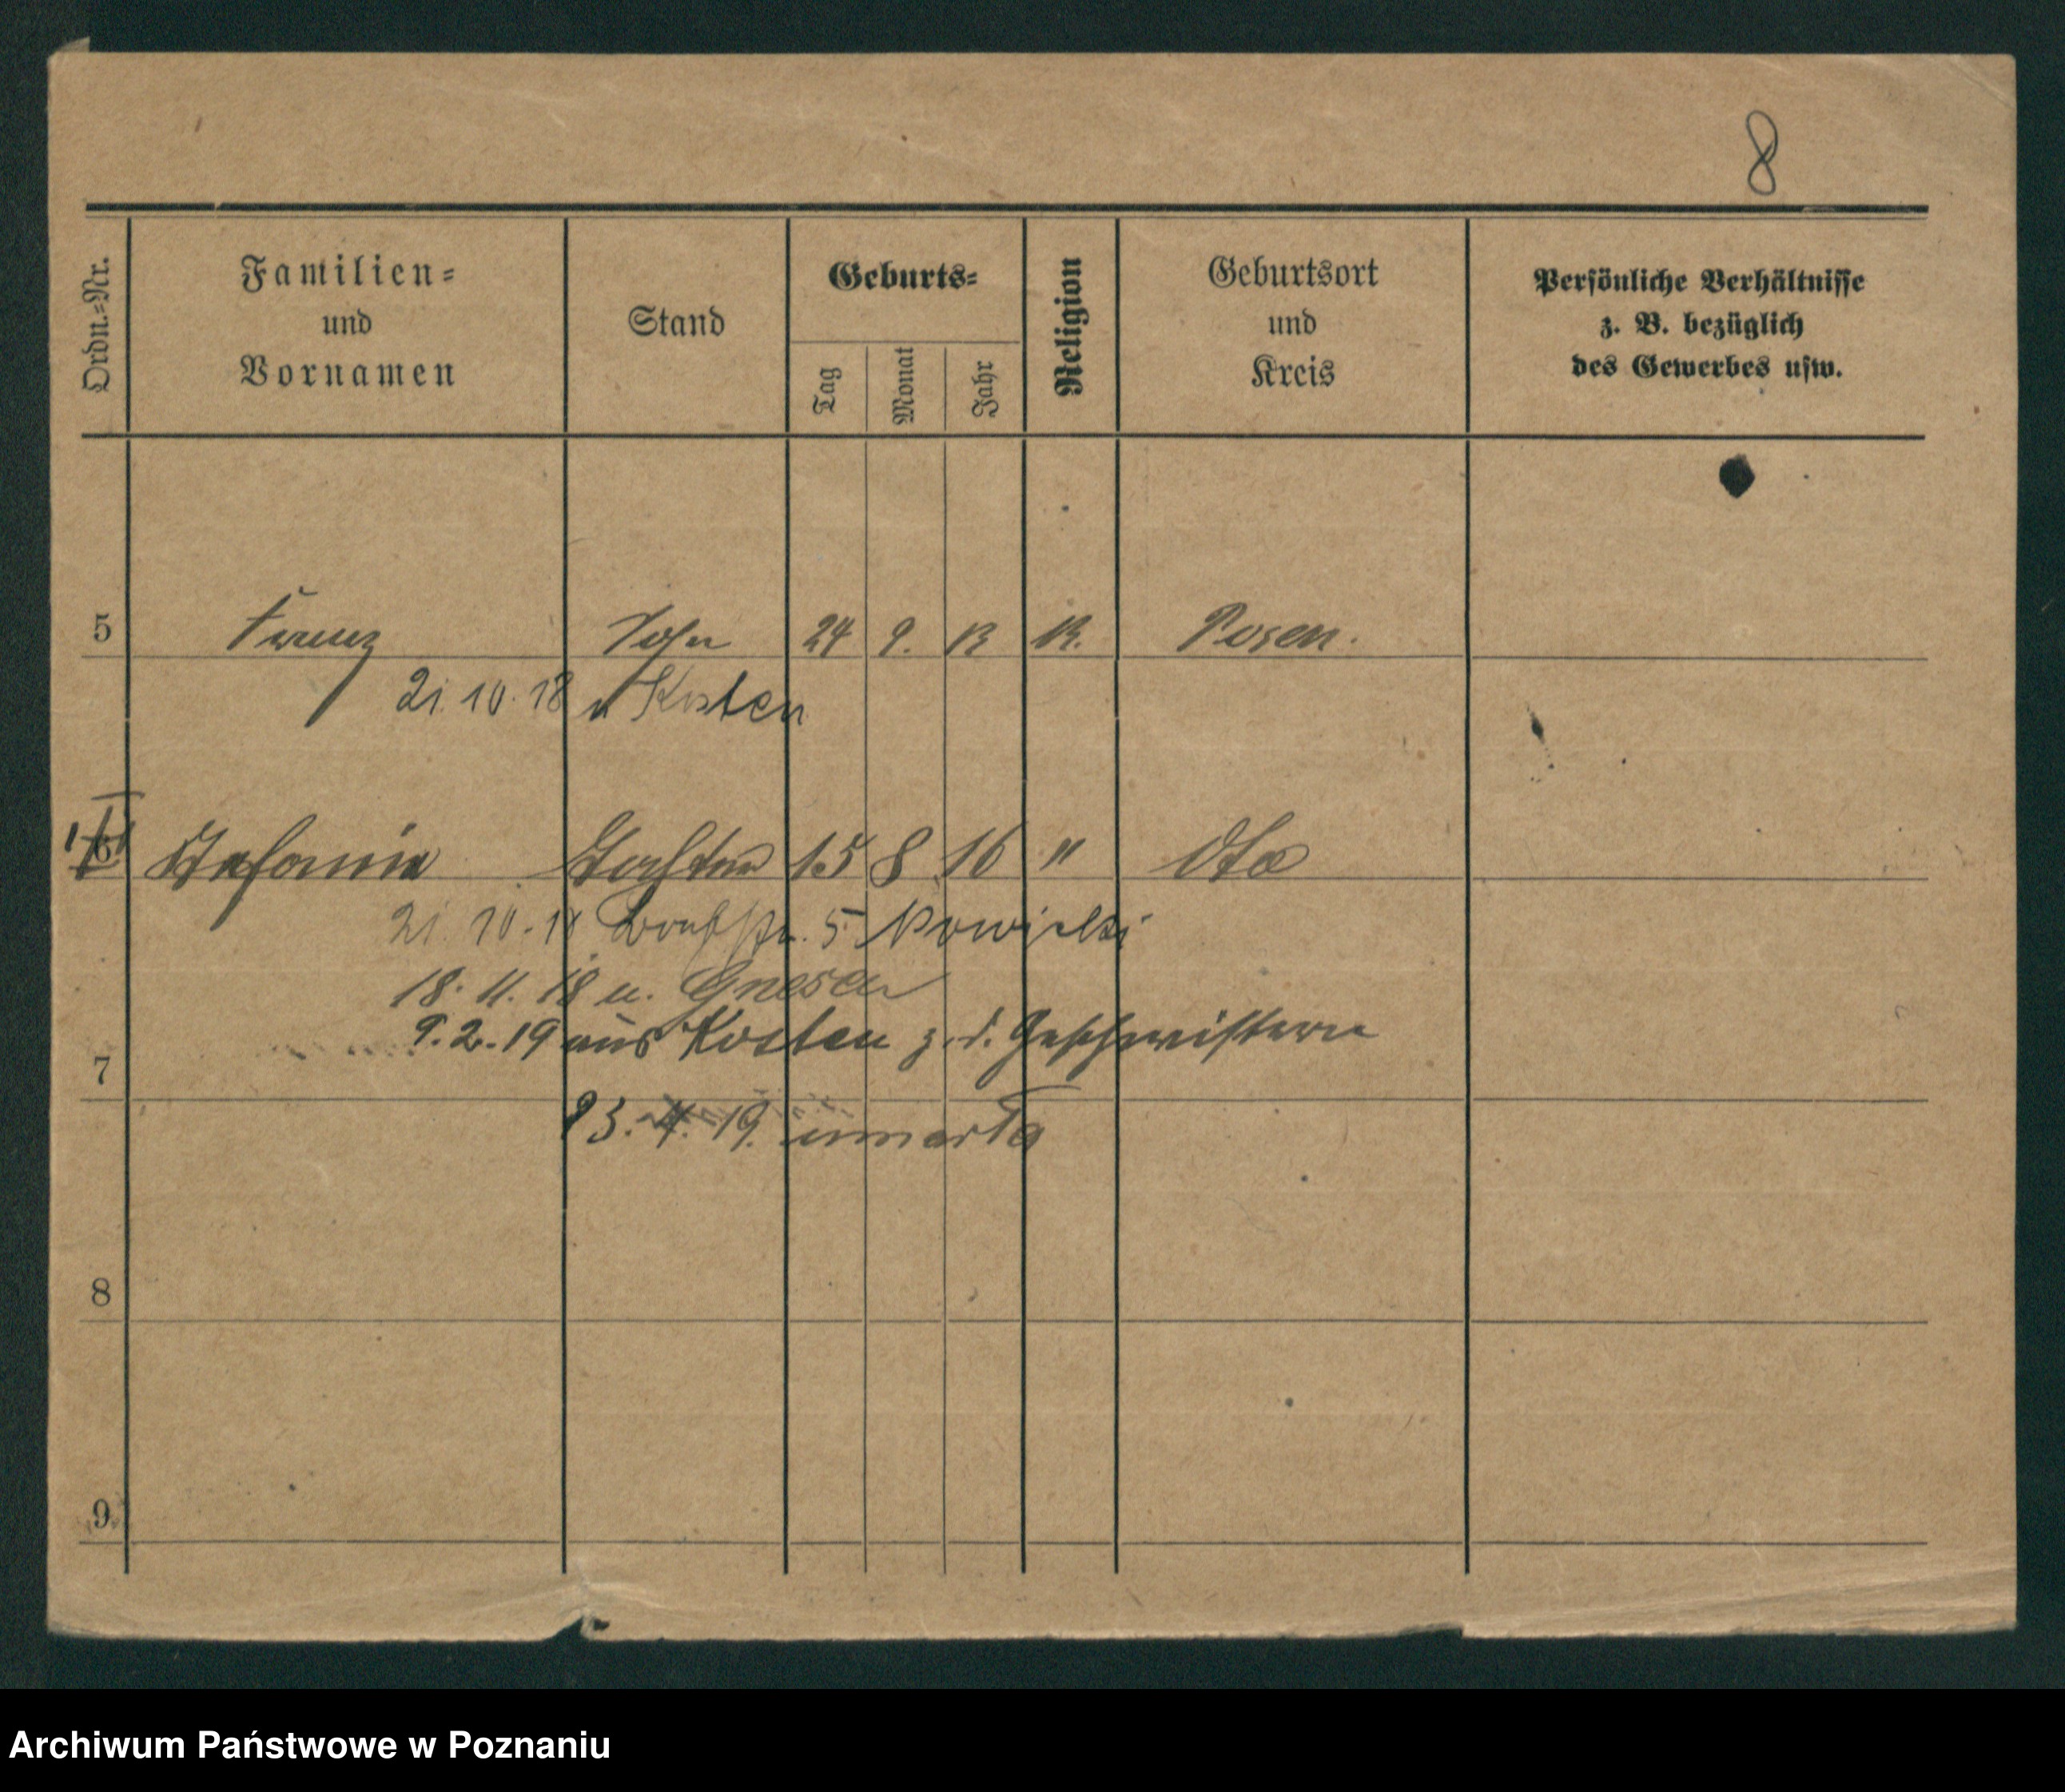 8
Ordn.=Nr.
Familien=
und
Vornamen
Stand
Geburts=
Tag
Monat
Jahr
Religion
Geburtsort
und
Kreis
Persönliche Verhältnisse
z. B. bezüglich
des Gewerbes usw.
5 Franz Sohn 24 9. 13 K. Posen.
21.10.18 n Kosten
6 Stefania Tochter 15 8 16 "
21.10.18 5
18.11.18 u. Gnesen
9.2.19 aus Kosten z. d. Geschwistern
7
19. umarła
8
9
Archiwum Państwowe w Poznaniu